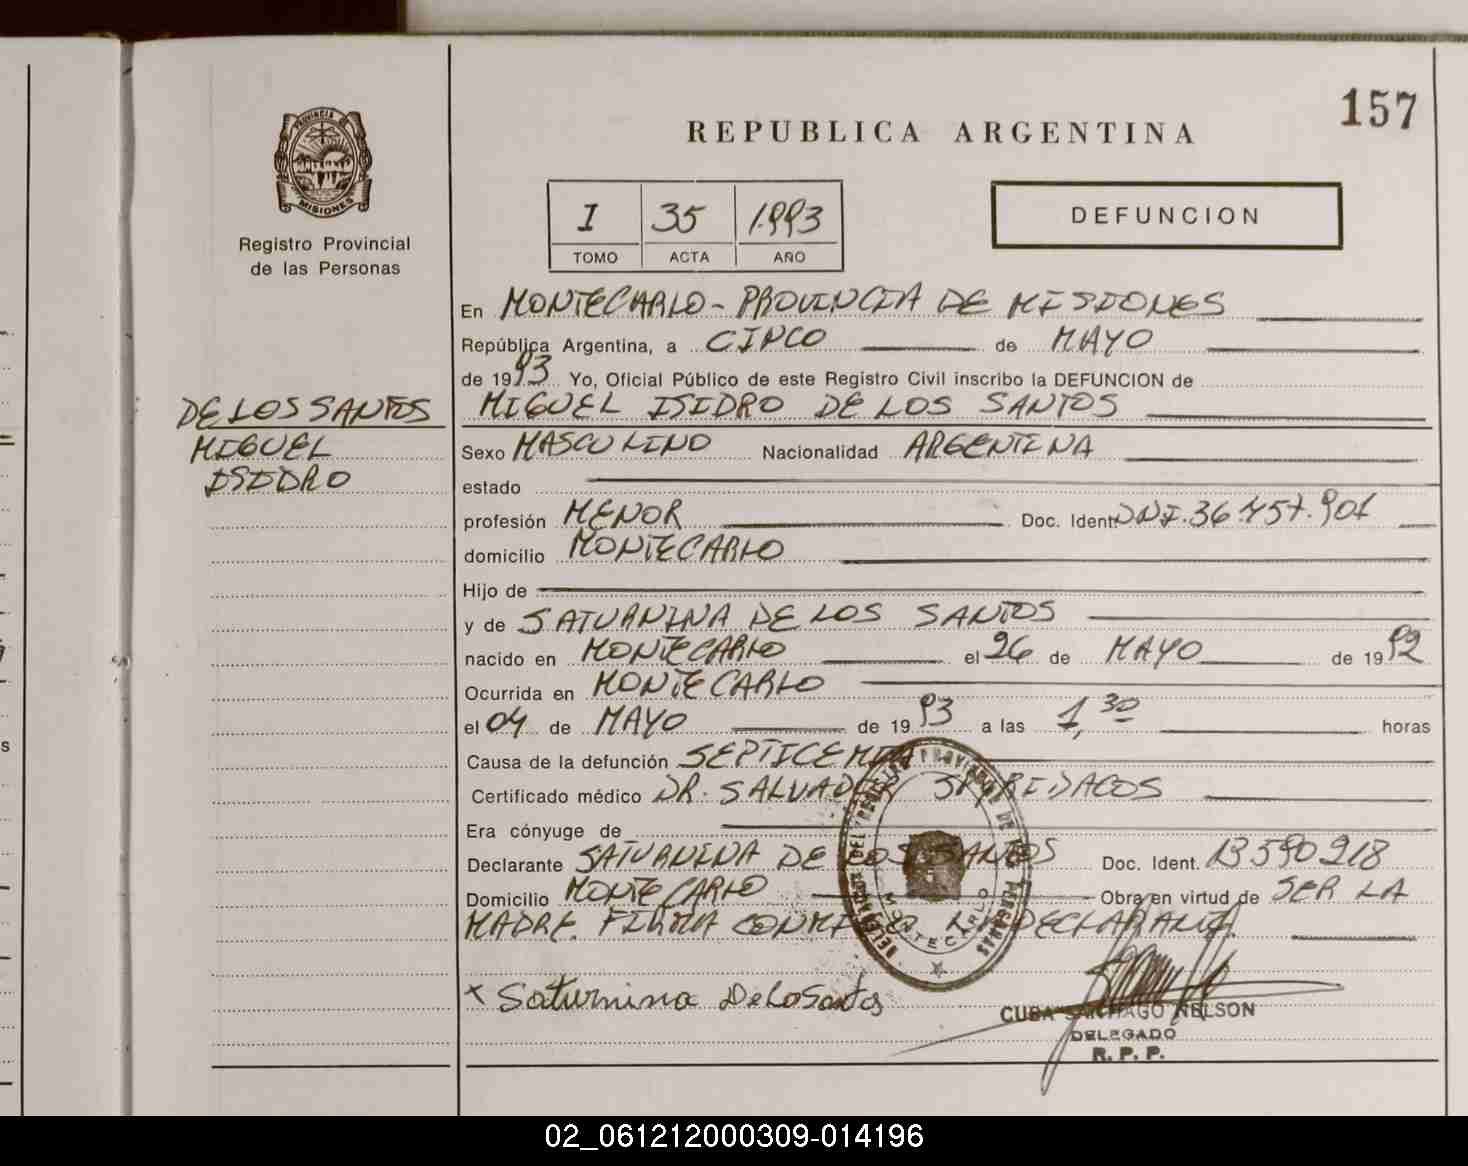 157
REPUBLICA ARGENTINA
PROVINCIA DE
MISIONES
Registro Provincial
de las Personas
I 35 1.993
TOMO ACTA AÑO
DEFUNCION
En MONTECARLO - PROVINCIA DE MISIONES
República Argentina, a CINCO de MAYO
de 1993 Yo, Oficial Público de este Registro Civil inscribo la DEFUNCION de
MIGUEL ISIDRO DE LOS SANTOS
DE LOS SANTOS
MIGUEL
ISIDRO
Sexo MASCULINO Nacionalidad ARGENTINA
estado
profesión MENOR Doc. Ident. DNI. 36.457.901
domicilio MONTECARLO
Hijo de
y de SATURNINA DE LOS SANTOS
nacido en MONTECARLO el 26 de MAYO de 1992
Ocurrida en MONTECARLO
el 04 de MAYO de 1993 a las 1,30 horas
Causa de la defunción SEPTICEMIA
Certificado médico DR. SALVADOR
Era cónyuge de
Declarante SATURNINA DE LOS SANTOS Doc. Ident. 13.590.218
Domicilio MONTECARLO Obra en virtud de SER LA
MADRE. FIRMA CONMIGO LA DECLARANTE.
DELEGACION DEL REGISTRO PROVINCIAL DE LAS PERSONAS
MONTECARLO
x Saturnina De Lo Santos
CUBA SANTIAGO NELSON
DELEGADO
R. P. P.
02_061212000309-014196